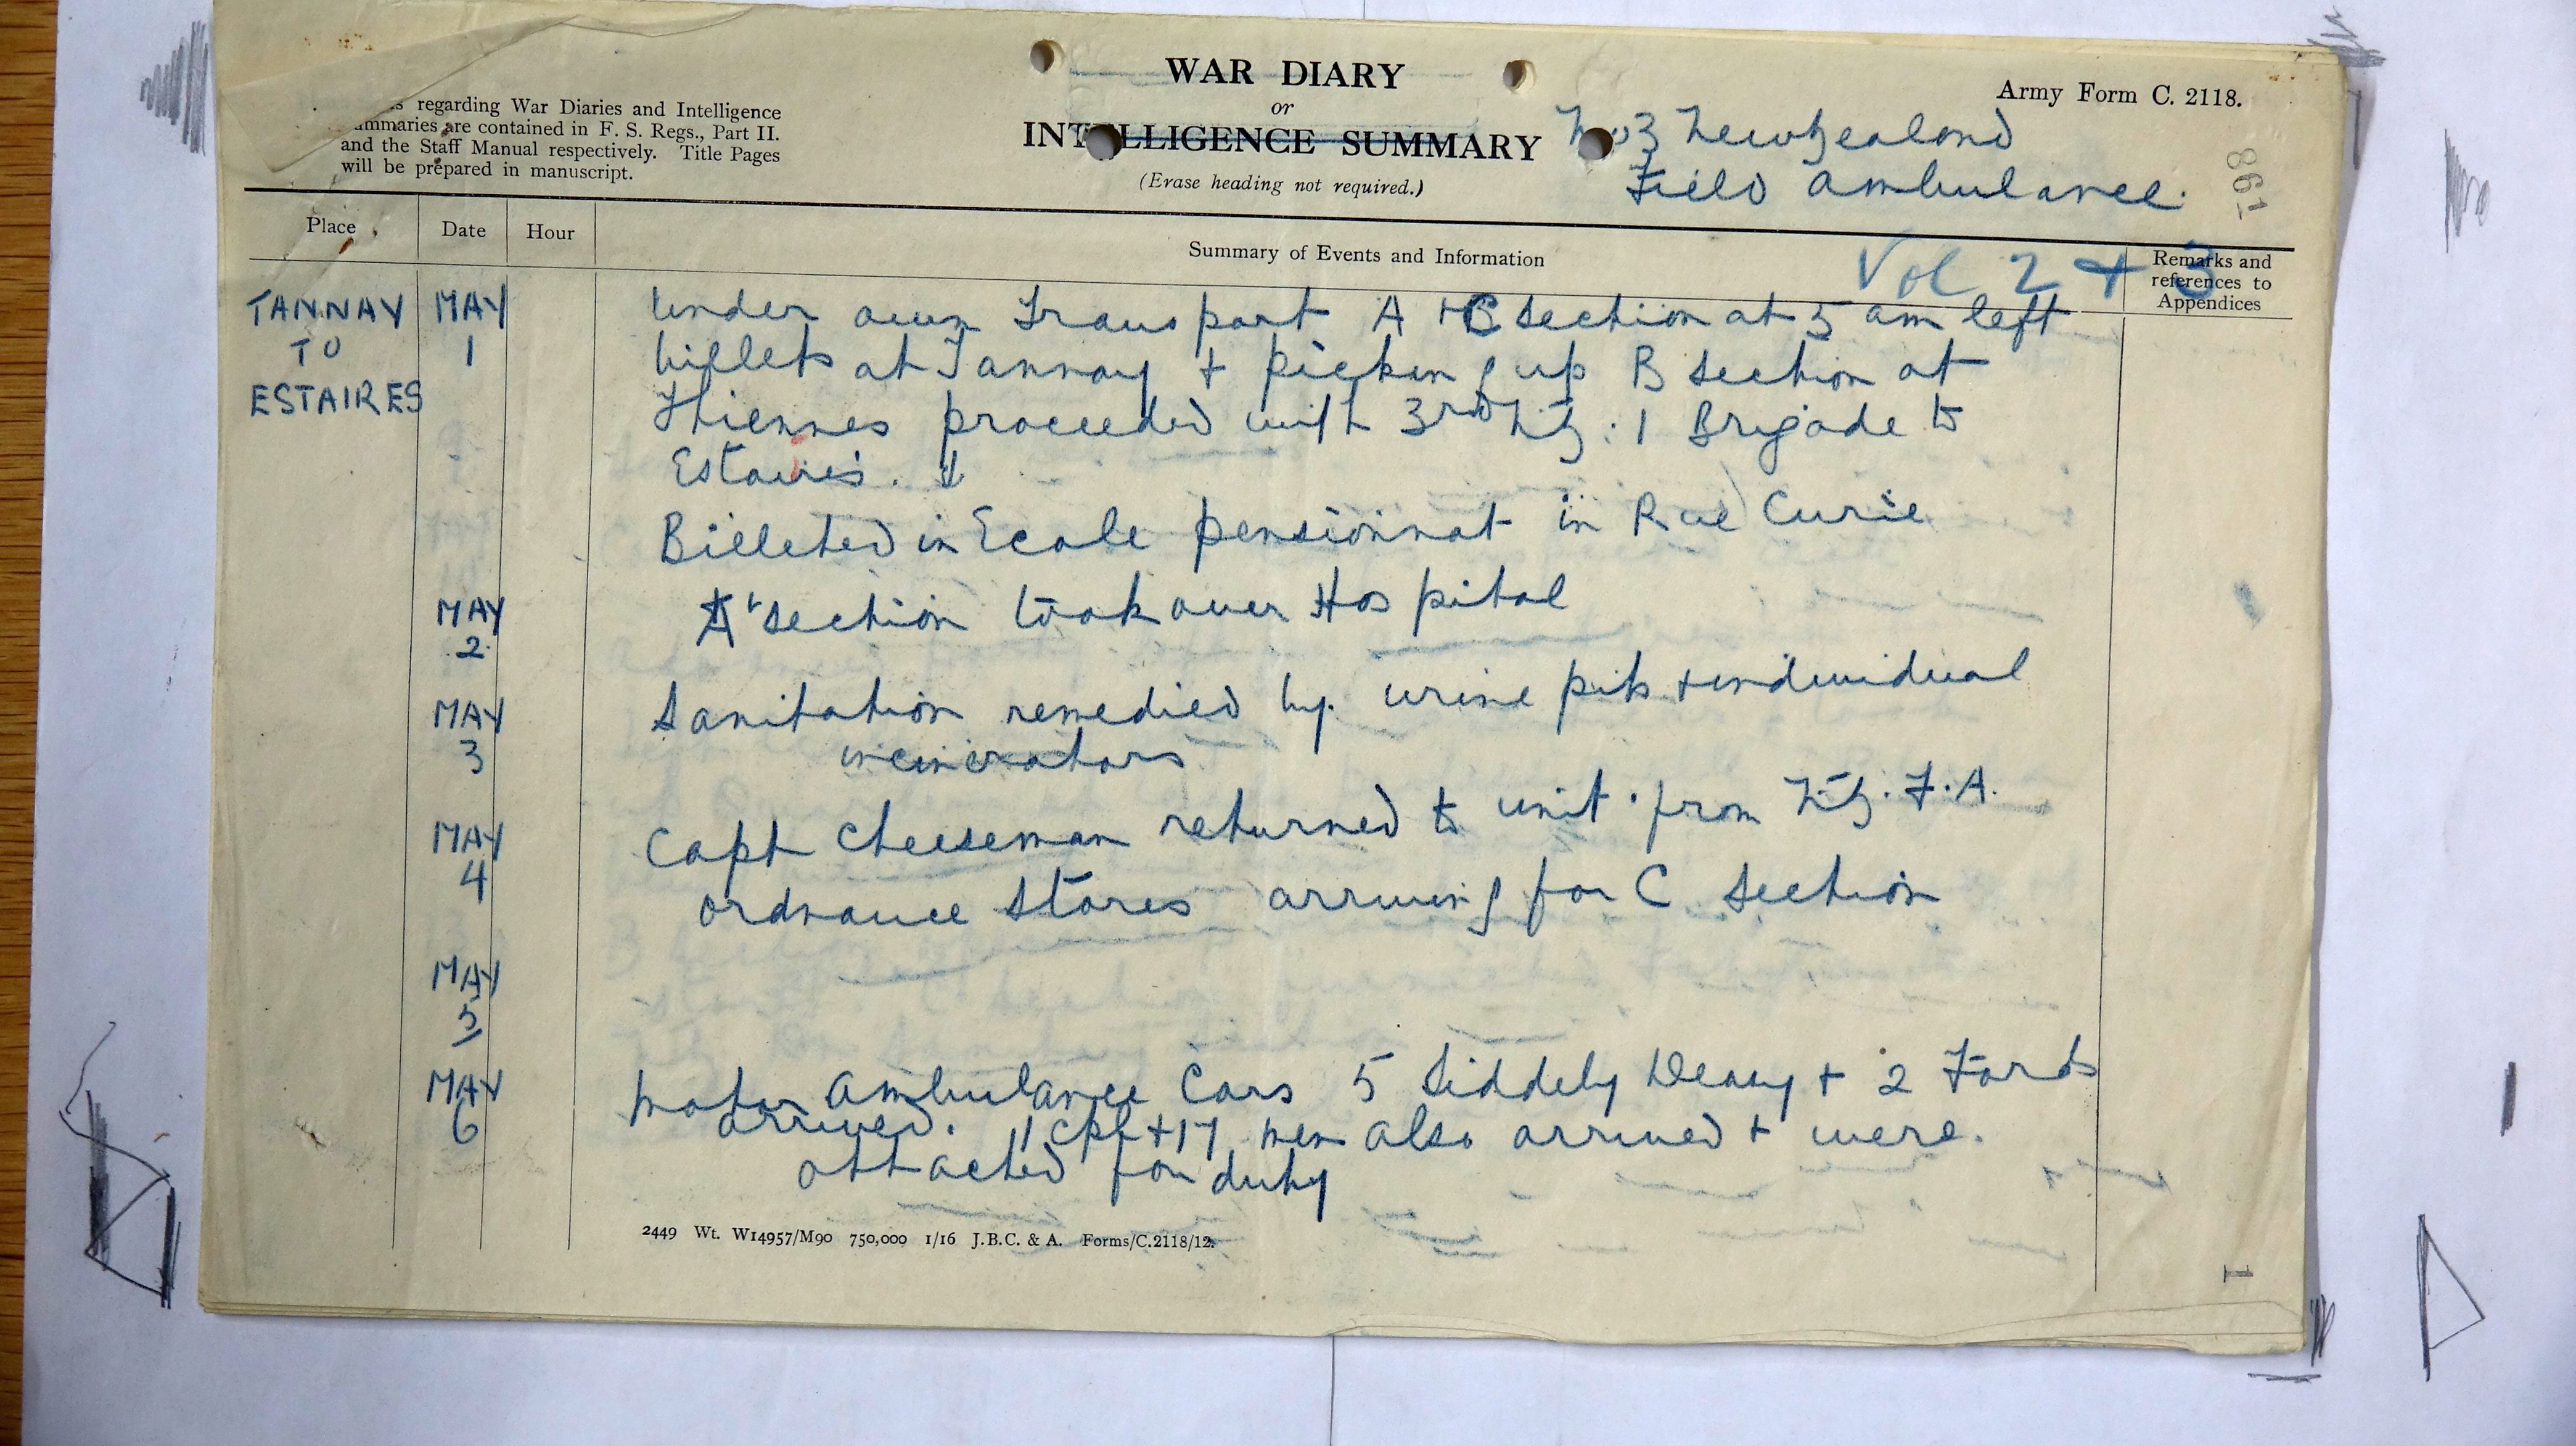 WAR DIARY
or
INTELLIGENCE SUMMARY
(Erase heading not required.)
Army Form C. 2118.
regarding War Diaries and Intelligence
Summaries are contained in F. S. Regs., Part II.
and the Staff Manual respectively. Title Pages
will be prepared in manuscript.
No 3 New Zealand
Field Ambulance.
198
Place
Date
Hour
Summary of Events and Information
Vol 2 + 3
Remarks and
references to
Appendices
TANNAY
TO
ESTAIRES
MAY
1
Under own Transport A + C section at 5 am left
billets at Tannay + picking up B section at
Thiennes proceeded with 3rd N.Z. : 1 Brigade to
Estaires.
Billeted in Ecole pensionnat in Rue Curie
MAY
2
A section took over Hospital
MAY
3
Sanitation remedied by urine pits + individual
incinerators
MAY
4
Capt Cheeseman returned to unit from N.Z. F.A.
Ordnance Stores arriving for C section
MAY
5
MAY
6
Motor Ambulance Cars 5 Siddely Deasy + 2 Fords
arrived. 1 Cpl + 17 men also arrived + were
attached for duty
2449 Wt. W14957/M90 750,000 1/16 J.B.C. & A. Forms/C.2118/12.
1